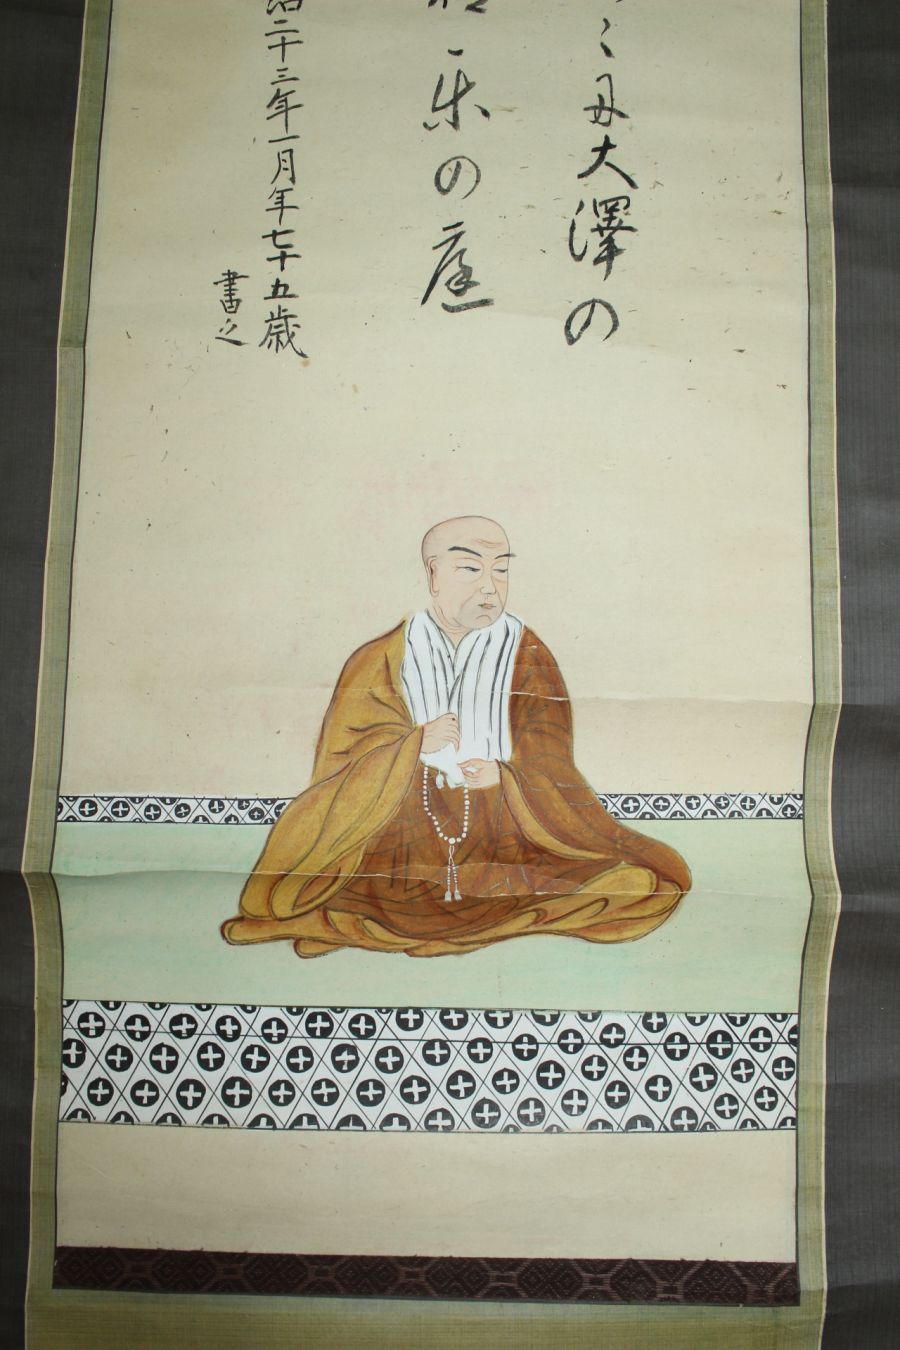 大澤の
楽の庭
治二十三年一月年七十五歳
書之